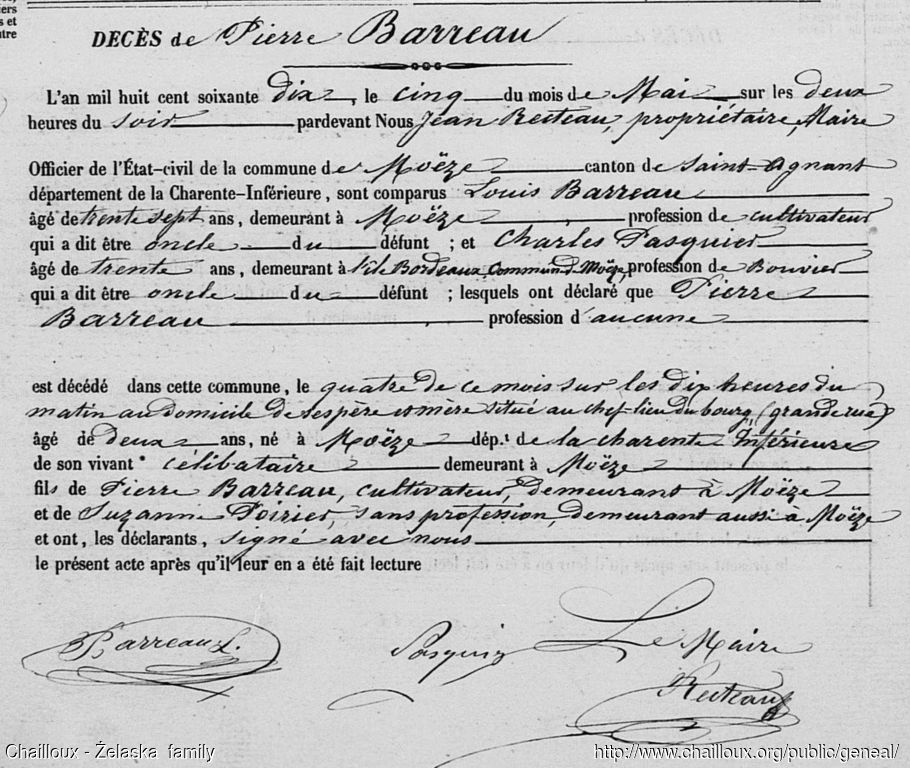 iers
s et
ntre
DECÈS de Pierre Barreau
L'an mil huit cent soixante dix, le cinq du mois de Mai sur les deux
heures du soir pardevant Nous Jean Recteau, propriétaire, Maire
Officier de l'État-civil de la commune de Moëze canton de Saint-Agnant
département de la Charente-Inférieure, sont comparus Louis Barreau
âgé de trente sept ans, demeurant à Moëze profession de cultivateur
qui a dit être oncle du défunt ; et Charles Pasquier
âgé de trente ans, demeurant à l'île Bordeaux, Commune de Moëze, profession de Bouvier
qui a dit être oncle du défunt ; lesquels ont déclaré que Pierre
Barreau profession d'aucune
est décédé dans cette commune, le quatre de ce mois sur les dix heures du
matin au domicile de ses père et mère situé au chef-lieu du bourg, (grande rue)
âgé de deux ans, né à Moëze dép.t de la charente Inférieure
de son vivant célibataire demeurant à Moëze
fils de Pierre Barreau, cultivateur, demeurant à Moëze
et de Suzanne Poirier, sans profession, demeurant aussi à Moëze
et ont, les déclarants, signé avec nous
le présent acte après qu'il leur en a été fait lecture
Barreau L. Pasquier Le Maire
Recteau
Chailloux - Želaska family http://www.chailloux.org/public/geneal/